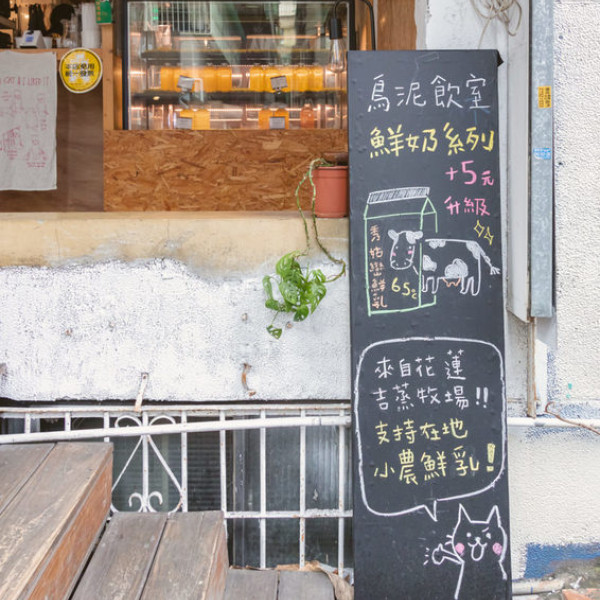 烏泥飲室
鮮奶系列
+5元
升級
秀姑巒鮮乳
65℃
來自花蓮
吉蒸牧場!!
支持在地
小農鮮乳!